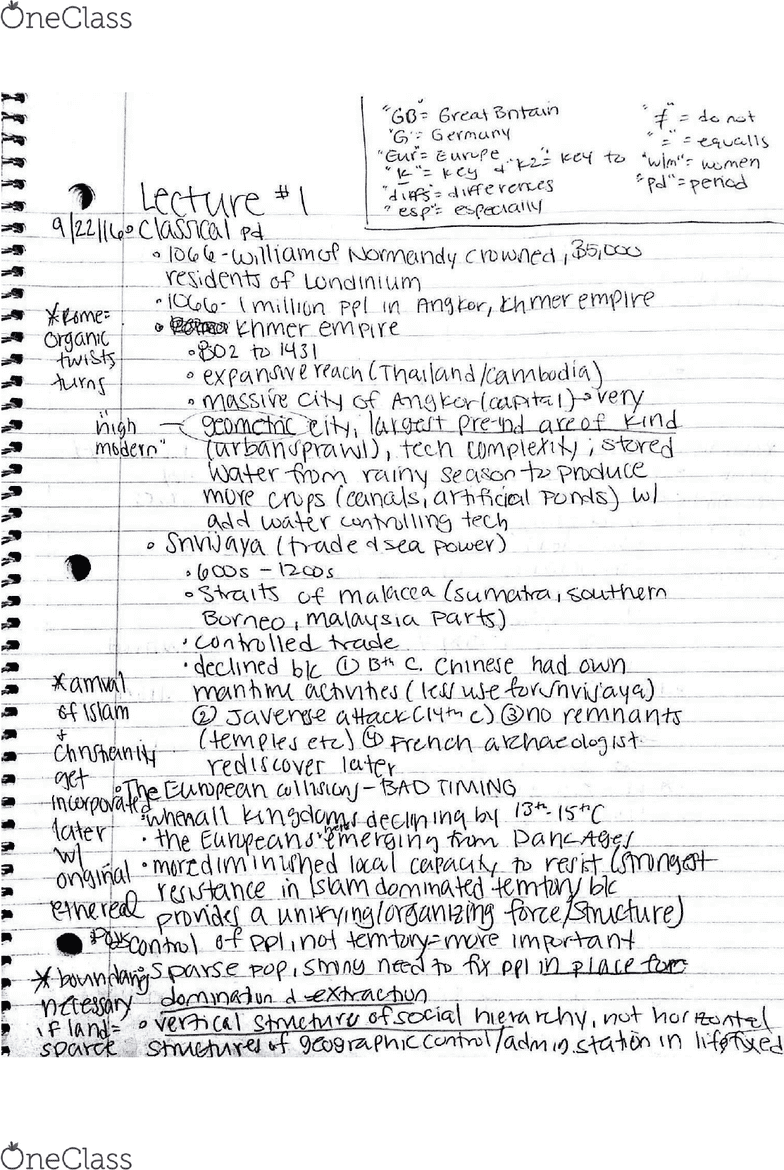 OneClass
"GB" = Great Britain
"G" = Germany
"Eur" = Europe
"K" = key & "K2" = key to
"diffs" = differences
"esp" = especially
"≠" = do not
"=" = equalls
"w/m" = women
"pd" = period
Lecture #1
9/22/16 ◦ Classical pd
◦ 1066 - William of Normandy crowned, 35,000
residents of Londinium
◦ 1066 - 1 million ppl in Angkor, Khmer empire
◦ Khmer empire
◦ 802 to 1431
◦ expansive reach (Thailand/Cambodia)
◦ massive city of Angkor (capital) → very
geometric city, largest pre-ind area of kind
(urban sprawl), tech complexity; stored
water from rainy season to produce
more crops (canals, artificial ponds) w/
add water controlling tech
*Rome =
organic
twists
turns
"high
modern"
◦ Srivijaya (trade & sea power)
◦ 600s - 1200s
◦ Straits of malacca (sumatra, southern
Borneo, malaysia parts)
◦ controlled trade
◦ declined b/c ① 13th C. Chinese had own
maritime activities (less use for srivijaya)
② Javanese attack (14th c) ③ no remnants
(temples etc) ④ French archaeologist
rediscover later
*arrival
of Islam
+
Christianity
get
incorporated
later
w/
original
ethereal
◦ The European collisions - BAD TIMING
◦ when all kingdoms declining by 13th-15th C
◦ the Europeans emerging from Dark Ages
◦ more diminished local capacity to resist (strongest
resistance in Islam dominated territory b/c
provides a unifying/organizing force/structure)
control of ppl, not territory = more important
◦ sparse pop, strong need to fix ppl in place for
domination & extraction
◦ vertical structure of social hierarchy, not horizontal
structures of geographic control/admin. station in life fixed
*boundaries
necessary
if land =
sparce
OneClass